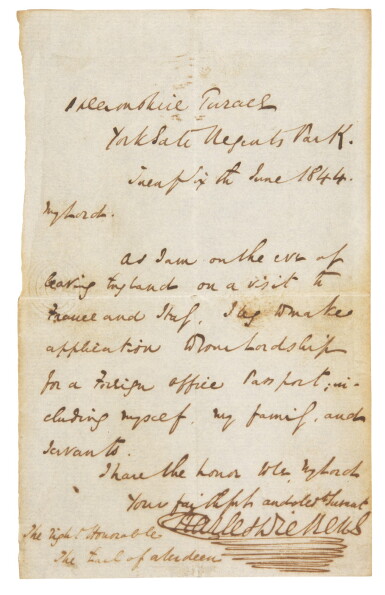 1 Devonshire Terrace
York Gate Regents Park.
Twenty Sixth June 1844.
My Lord.
As I am on the eve of
leaving England on a visit to
France and Italy, I beg to make
application to Your Lordship
for a Foreign office Passport; in-
cluding myself, my family, and
servants.
I have the honor to be, My Lord
Your faithful and obedt Servant
Charles Dickens
The Right Honorable
The Earl of Aberdeen